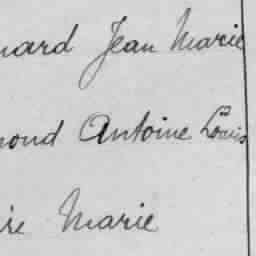 nard Jean Marie
mond Antoine Louis
ire Marie